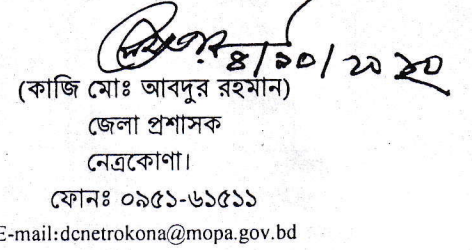 ৪/১০/২০২০
(কাজি মোঃ আবদুর রহমান)
জেলা প্রশাসক
নেত্রকোণা।
ফোনঃ ০৯৫১-৬১৫১১
E-mail:dcnetrokona@mopa.gov.bd